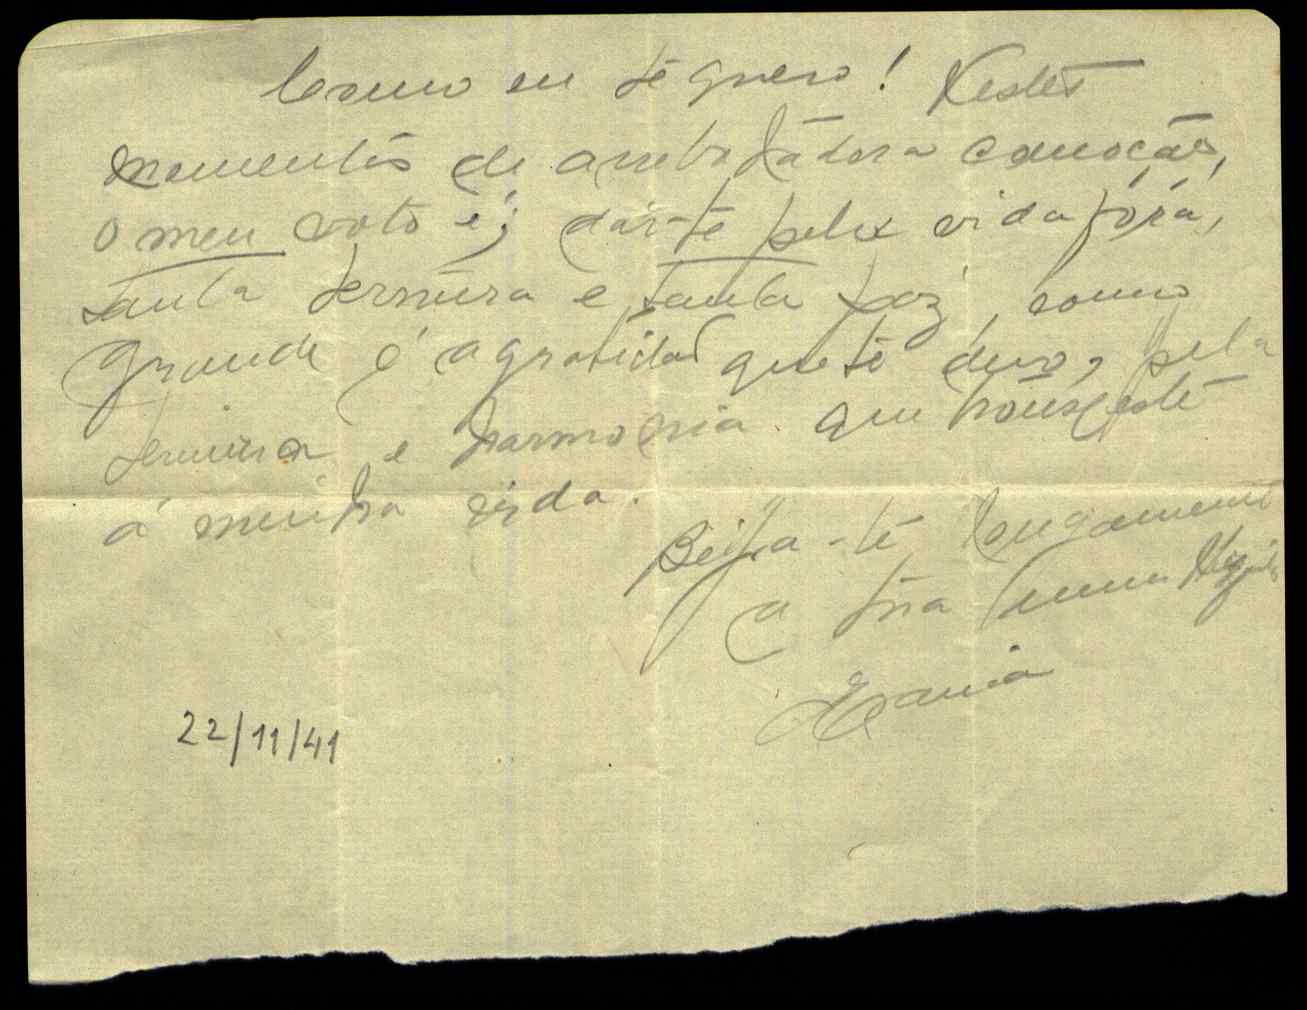 Como eu te quero! Neste
momentos de arrebatadora comoção,
o meu voto é; dar-te pela vida fóra,
tanta ternura e tanta paz, como
grande é a gratidão que te devo, pela
ternura e harmonia que trouxeste
á minha vida.
Beija-te longamente
a tua
22/11/41